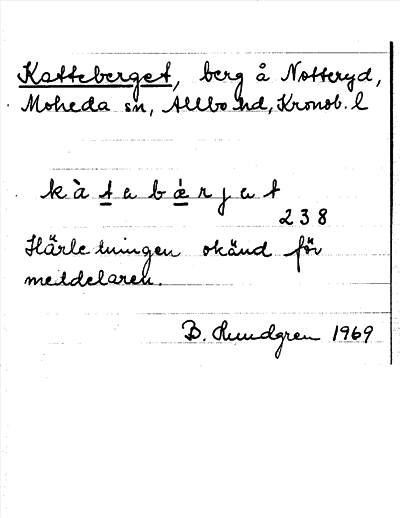 Katteberget, berg å Notteryd,
Moheda sn, Allbo hd, Kronob. l
kàtabærjat
238
Härledningen okänd för
meddelaren.
B. Rundgren 1969